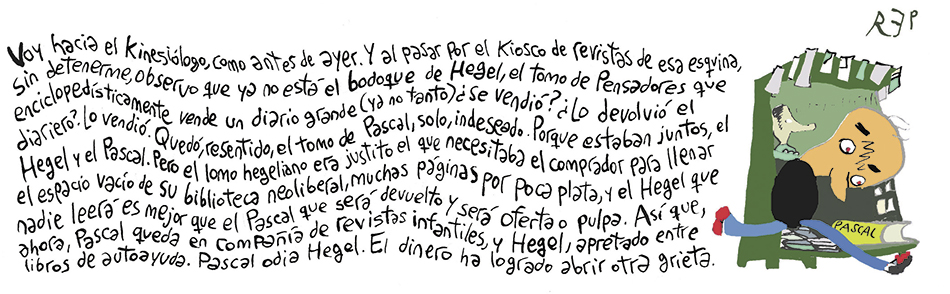 REP
Voy hacia el Kinesiólogo, como antes de ayer. Y al pasar por el Kiosco de revistas de esa esquina,
sin detenerme, observo que ya no está el bodoque de Hegel, el tomo de Pensadores que
enciclopedísticamente vende un diario grande (ya no tanto) ¿Se vendió? ¿Lo devolvió el
diariero? Lo vendió. Quedó, resentido, el tomo de Pascal, solo, indeseado. Porque estaban juntos, el
Hegel y el Pascal. Pero el lomo hegeliano era justito el que necesitaba el comprador para llenar
el espacio vacío de su biblioteca neoliberal, muchas páginas por poca plata, y el Hegel que
nadie leerá es mejor que el Pascal que será devuelto y será oferta o pulpa. Así que,
ahora, Pascal queda en compañía de revistas infantiles, y Hegel, apretado entre
libros de autoayuda. Pascal odia Hegel. El dinero ha logrado abrir otra grieta.
PASCAL